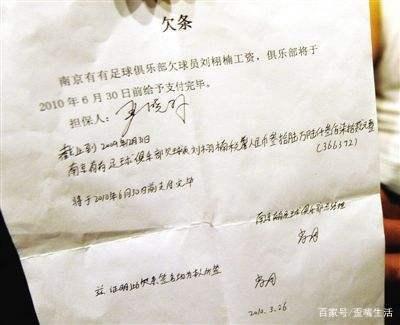 欠条
南京有有足球俱乐部欠球员刘栩楠工资，俱乐部将于
2010年6月30日前给予支付完毕。
担保人：
截止到2009年12月31日
南京有有足球俱乐部欠球员刘栩楠税后人民币叁拾陆万陆仟叁佰柒拾贰元整
(366372)
将于2010年6月30日前支付完毕
南京有有足球俱乐部总经理
兹证明此欠条签名均为本人所签
2010.3.26
百家号/歪嘴生活